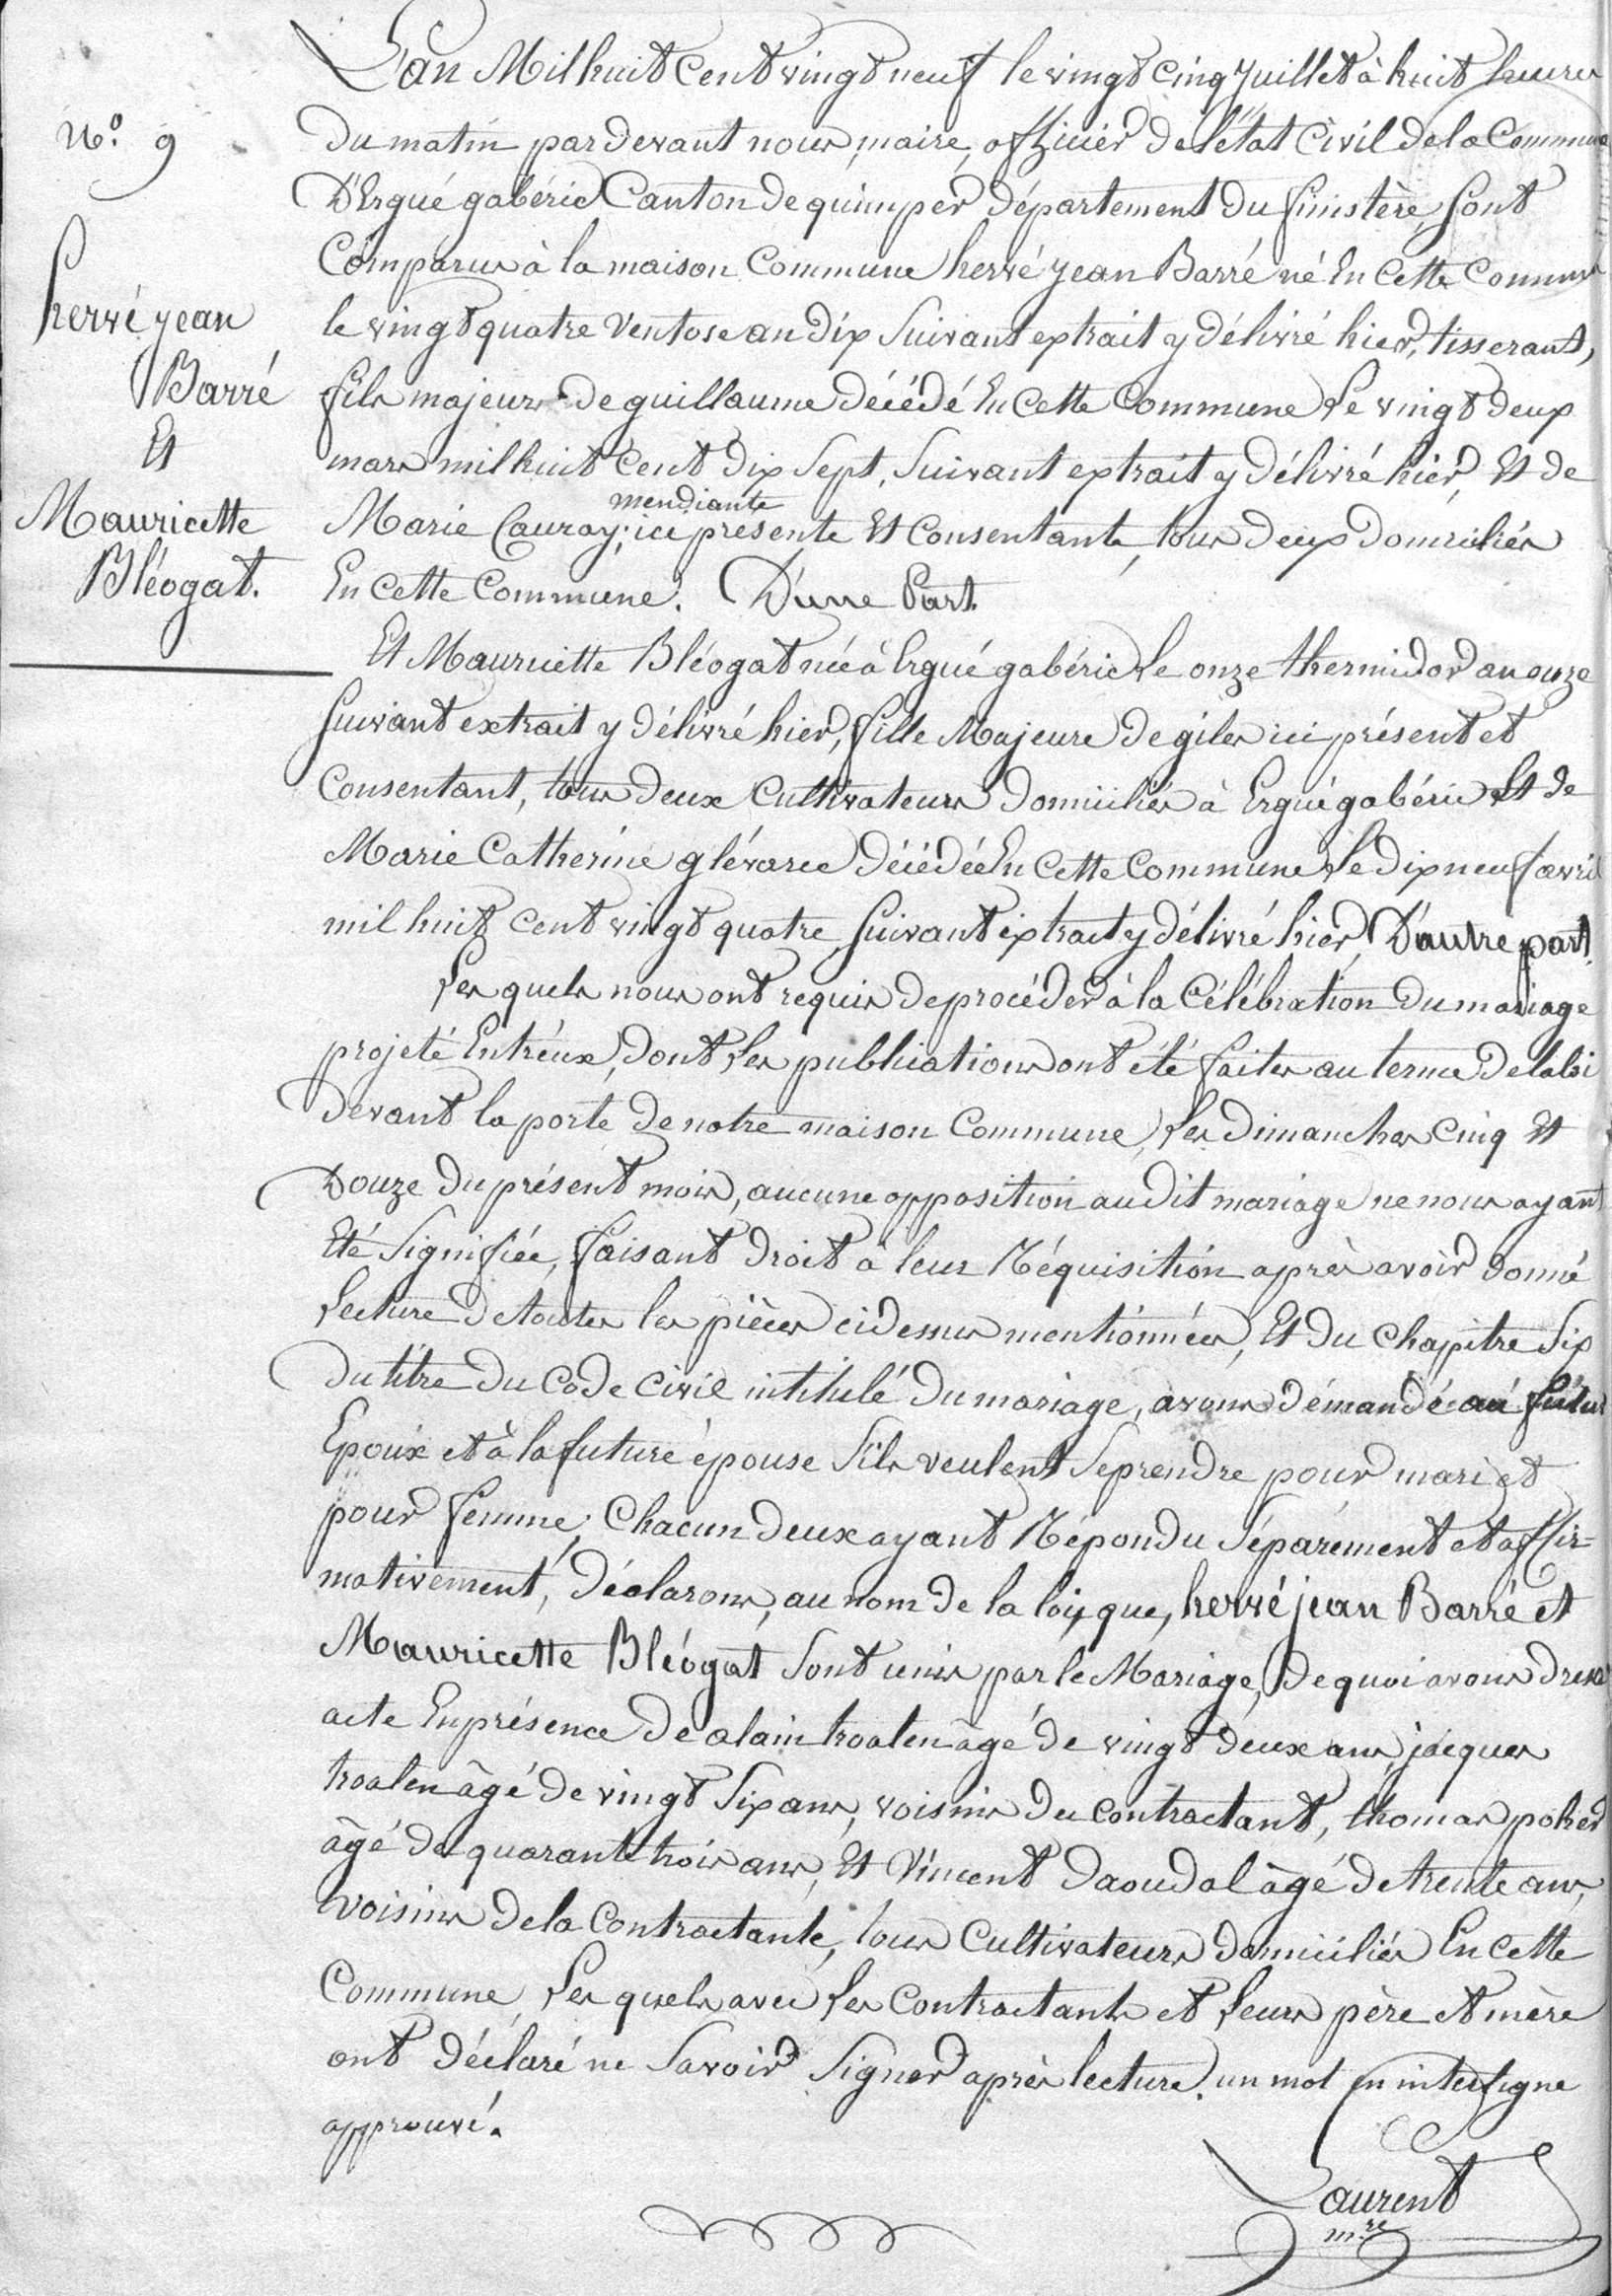 N.º 9
hervé jean
Barré
Et
Mauricette
Bléogat.
L'an Mil huit Cent vingt neuf le vingt Cinq Juillet à huit heures
du matin par devant nous, maire, officier de l'état Civil de la Commune
D'Ergué gabéric Canton de quimper département du finistère, sont
Comparus à la maison Commune hervé jean Barré né En Cette Commune
le vingt quatre Ventose an dix suivant extrait y délivré hier, tisserant,
fils majeur de guillaume décédé En Cette Commune le vingt deux
mars mil huit Cent dix sept, suivant extrait y délivré hier, Et de
mendiante
Marie Cauray, ici présente Et Consentante, tous deux domiciliés
En Cette Commune. D'une Part.
Et Mauricette Bléogat née à Ergué gabéric le onze thermidor an onze
suivant extrait y délivré hier, fille Majeure de giles ici présent et
Consentant, tous deux Cultivateurs domiciliés à Ergué gabéric Et de
Marie Catherine glévarec décédée En Cette Commune le dix neuf avril
mil huit Cent vingt quatre suivant extrait y délivré hier, D'autre part.
Les quels nous ont requis de procéder à la Célébration du mariage
projeté Entréux, dont les publications ont été faites au terme de la loi
devant la porte de notre maison Commune, les dimanches Cinq Et
Douze du présent mois, aucune opposition au dit mariage ne nous ayant
Eté signifiée, faisant droit à leur Réquisition après avoir donné
lecture de toutes les pièces ci dessus mentionnées, Et du Chapitre six
du titre du Code Civil intitulé du mariage, avons démandé au futur
Epoux et à la future épouse s'ils veulent se prendre pour mari et
pour femme, Chacun deux ayant Répondu séparément et affir=
mativement, déclarons, au nom de la loi, que, hervé jean Barré et
Mauricette Bléogat sont unis par le Mariage, De quoi avons dressé
acte En présence de alain troalen âgé de vingt deux ans, jacques
troalen âgé de vingt six ans, voisins du contractant, thomas poher
âgé de quarante trois ans, Et Vincent Daoudal âgé de trente ans,
voisins de la Contractante, tous Cultivateurs domiciliés En Cette
Commune, Les quels avec les Contractants et leurs père et mère
ont déclaré ne savoir signer après lecture. un mot en interligne
approuvé.
Laurent
m.re